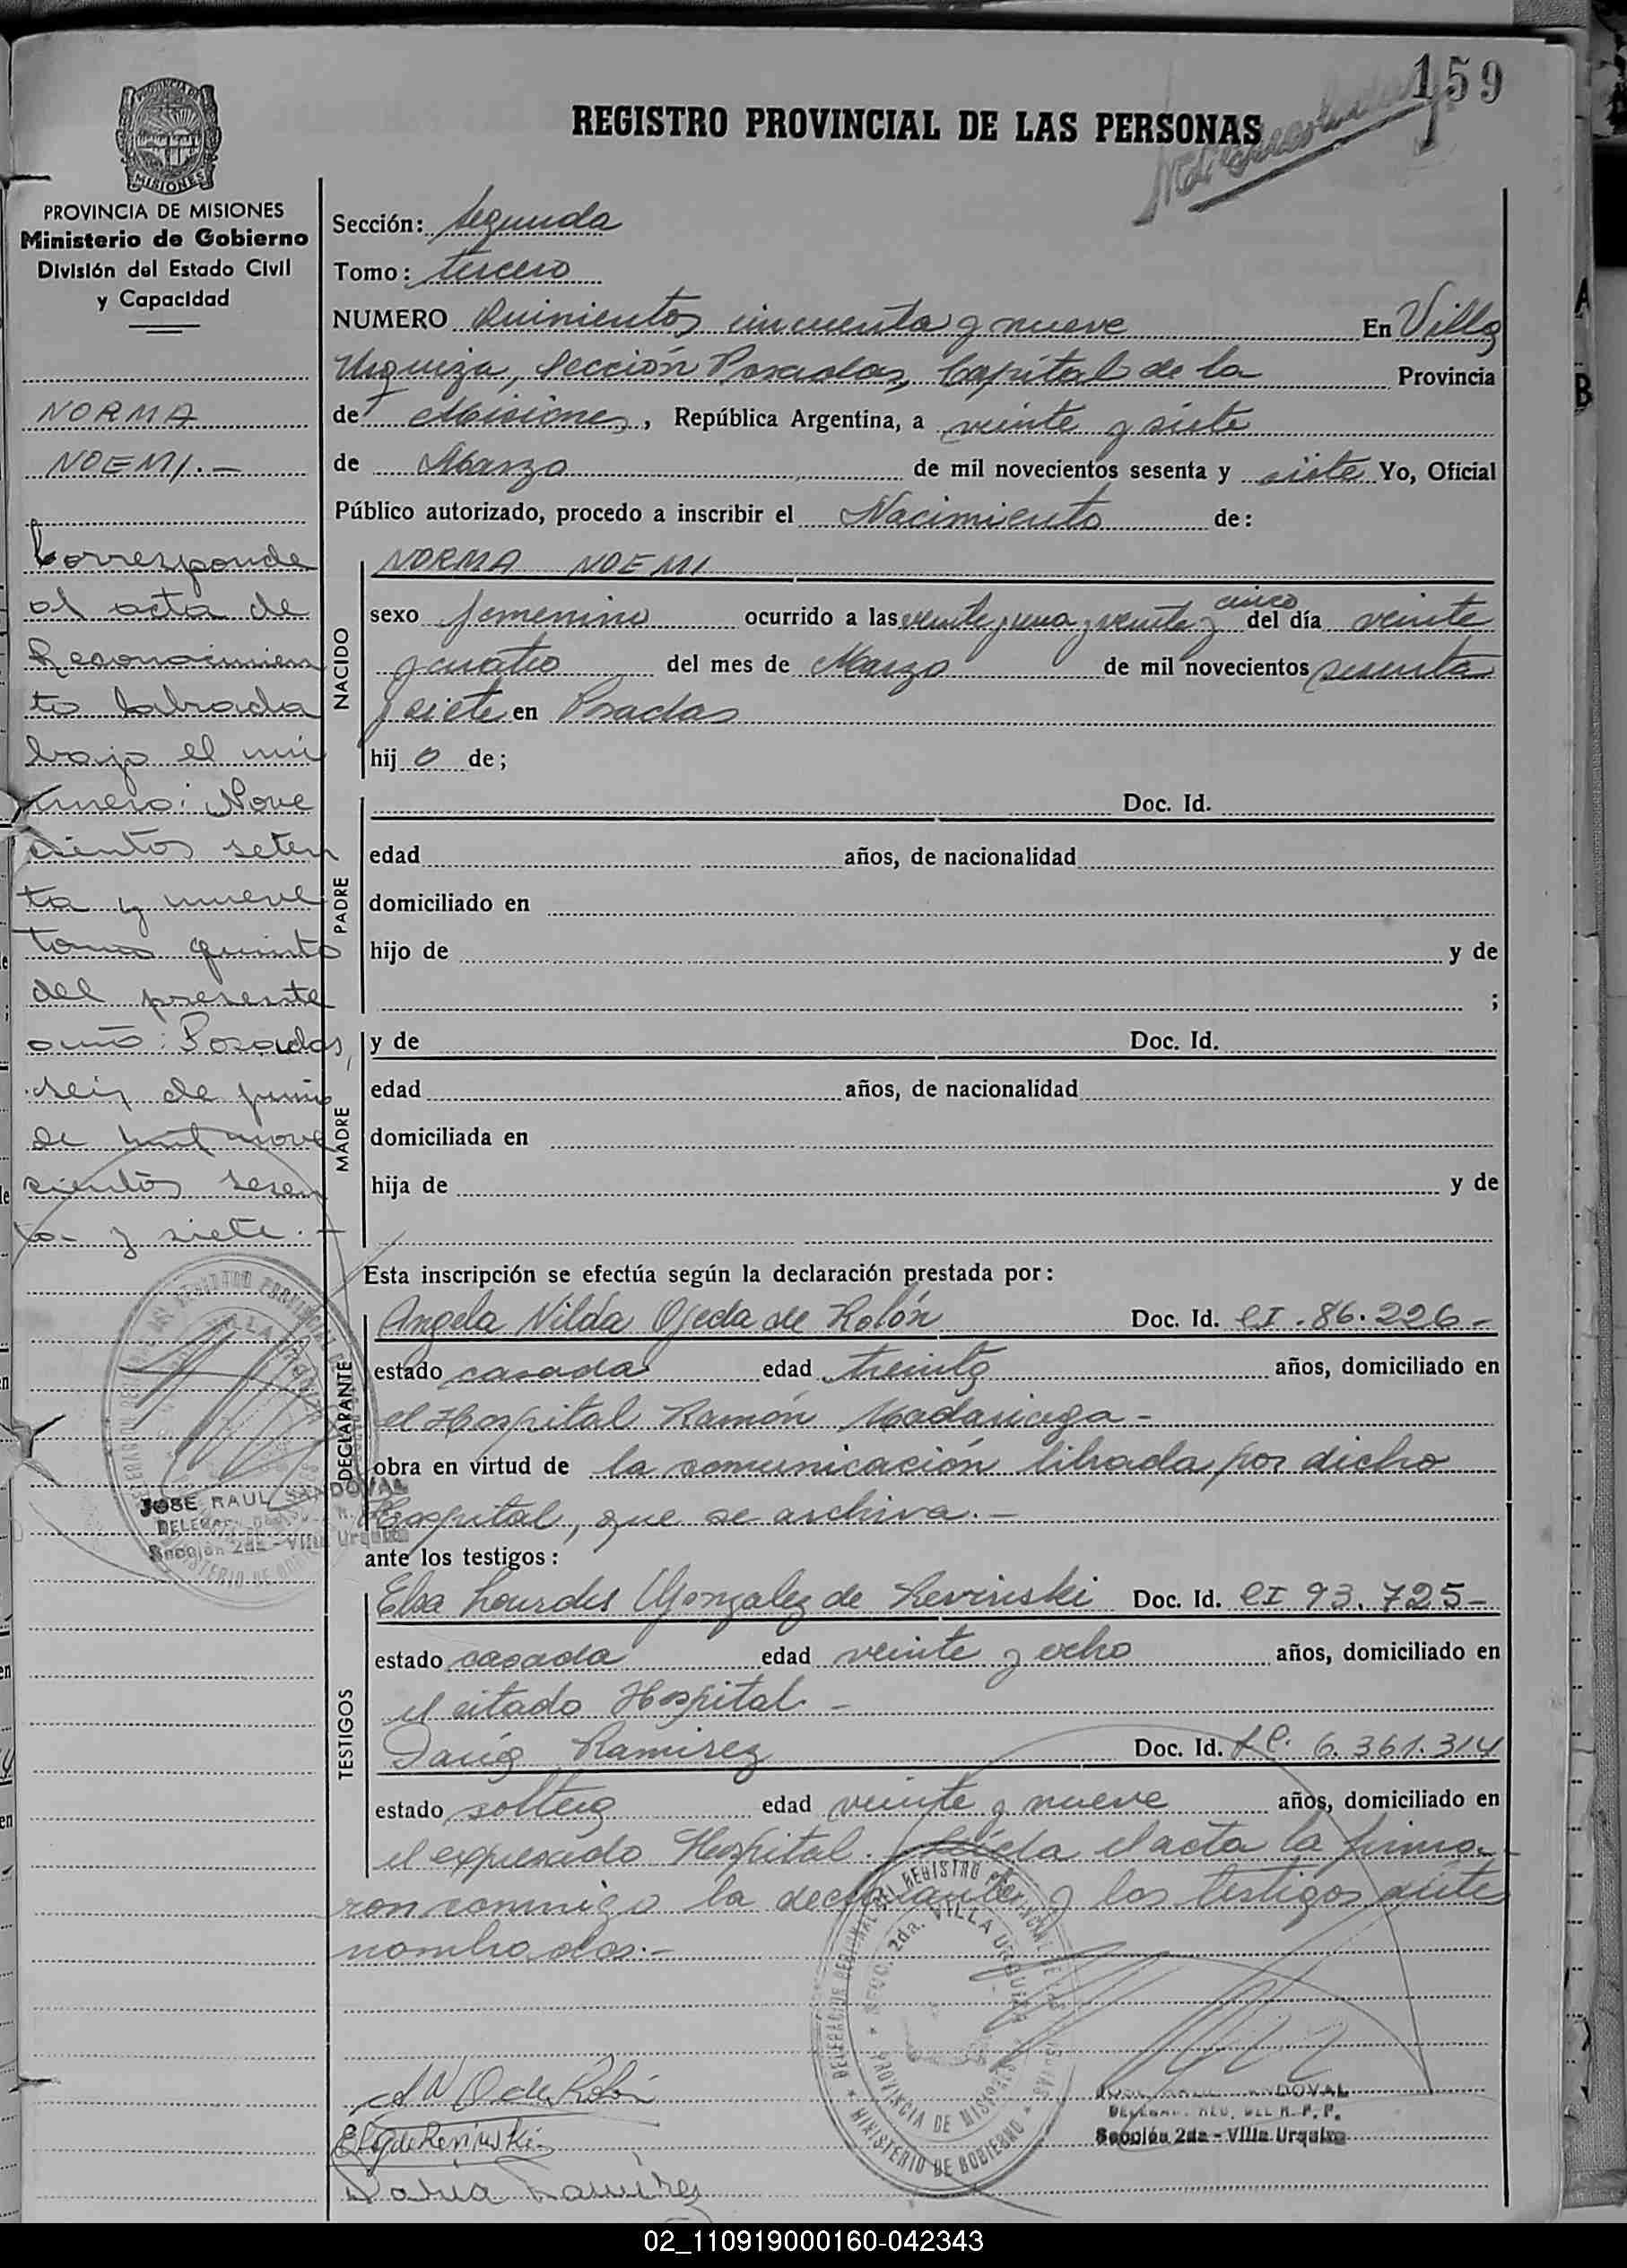 159
REGISTRO PROVINCIAL DE LAS PERSONAS
PROVINCIA DE MISIONES
Ministerio de Gobierno
División del Estado Civil
y Capacidad
NORMA
NOEMI.-
Corresponde
al acta de
Reconocimien
to labrada
bajo el nú
mero: Nove
cientos seten
ta y nueve
tomo quinto
del presente
año: Posadas,
seis de junio
de mil nove
cientos sesen
ta y siete.-
JOSE RAUL SANDOVAL
Sección 2da - Villa Urquiza
Sección: Segunda
Tomo: tercero
NUMERO Quinientos cincuenta y nueve En Villa
Urquiza, Sección Posadas, Capital de la Provincia
de Misiones, República Argentina, a veinte y siete
de Marzo de mil novecientos sesenta y siete Yo, Oficial
Público autorizado, procedo a inscribir el Nacimiento de:
NACIDO
NORMA NOEMI
sexo femenino ocurrido a las veinte y una y veinte y cinco del día veinte
y cuatro del mes de Marzo de mil novecientos sesenta
y siete en Posadas
hij o de;
PADRE
Doc. Id.
edad años, de nacionalidad
domiciliado en
hijo de y de
;
MADRE
y de Doc. Id.
edad años, de nacionalidad
domiciliada en
hija de y de
Esta inscripción se efectúa según la declaración prestada por:
DECLARANTE
Angela Nilda Ojeda de Rolón Doc. Id. CI. 86.226-
estado casada edad treinta años, domiciliado en
el Hospital Ramón Madariaga-
obra en virtud de la comunicación librada por dicho
Hospital, que se archiva.-
ante los testigos:
TESTIGOS
Elsa Lourdes Gonzalez de Reviriski Doc. Id. CI 93.725-
estado casada edad veinte y ocho años, domiciliado en
el citado Hospital.-
Ramirez Doc. Id. LC. 6.361.314
estado soltera edad veinte y nueve años, domiciliado en
el expresado Hospital. Leída el acta la firma-
ron conmigo la declarante y los testigos ante
nombrados.-
DELEGACION REGIONAL DEL REGISTRO PROVINCIAL DE LAS PERSONAS
SECC. 2da. VILLA URQUIZA
PROVINCIA DE MISIONES
MINISTERIO DE GOBIERNO
A N O de Rolón
Ramirez
JOSE RAUL SANDOVAL
DELEGAD. REG. DEL R. P. P.
Sección 2da - Villa Urquiza
02_110919000160-042343